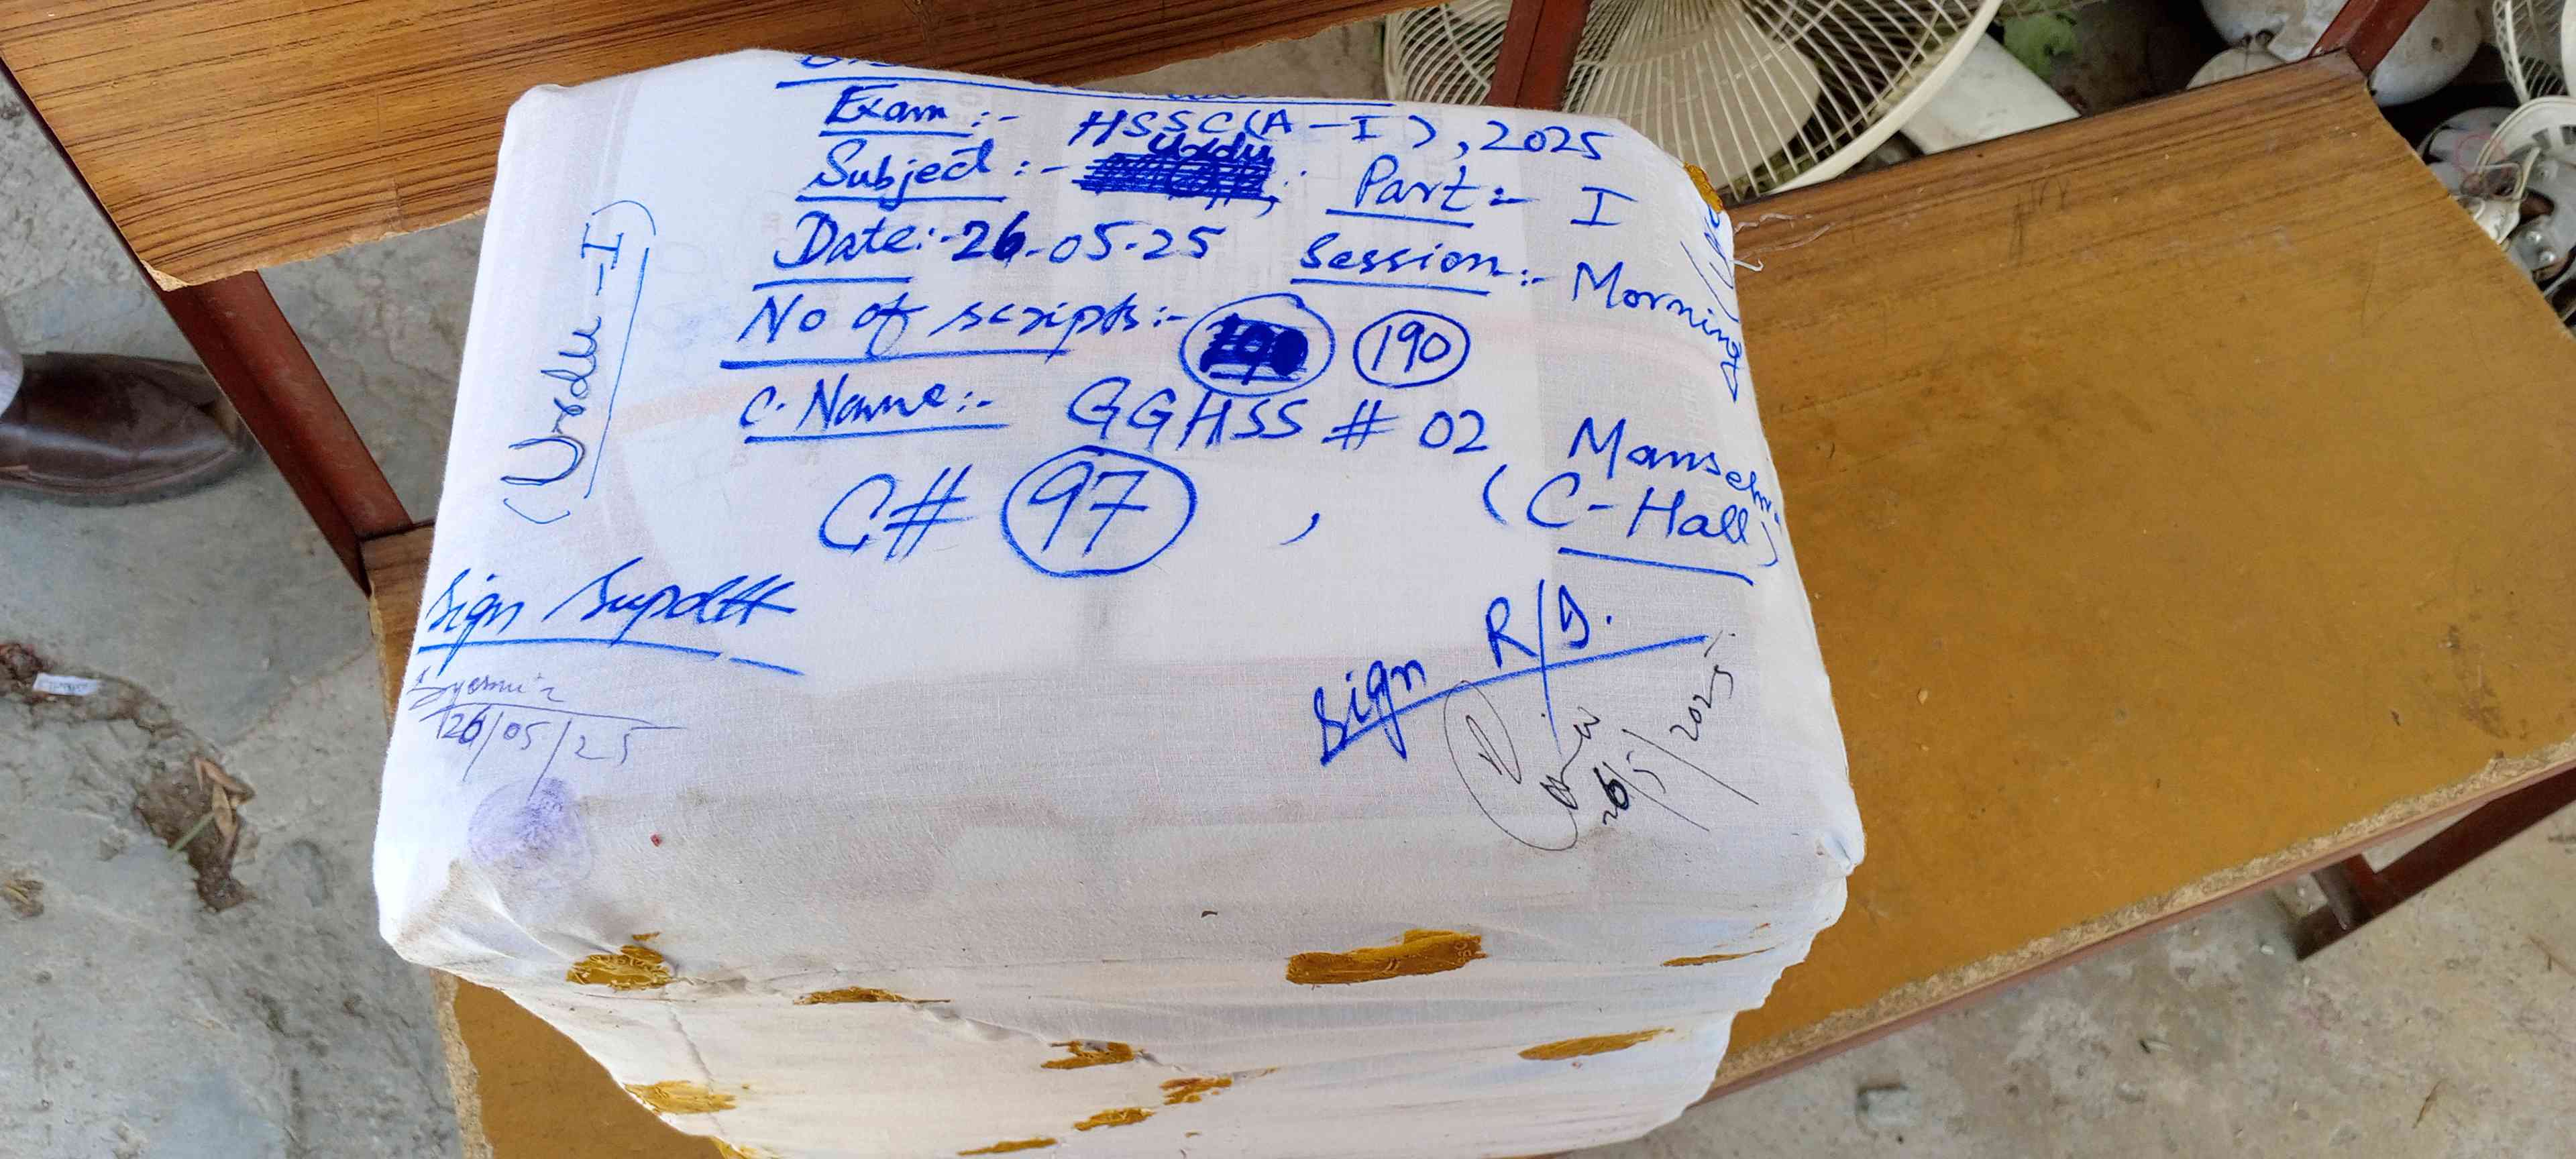 Exam :- HSSC(A-I), 2025
Subject :- Urdu Part :- I
Date :- 26-05-25 Session :- Morning
No of scripts :- 190
C. Name :- GGHSS # 02 Mansehra
C# 97 , (C-Hall)
(Urdu-I)
Sign Supdtt
26/05/25
Sign R/I.
26/5/2025